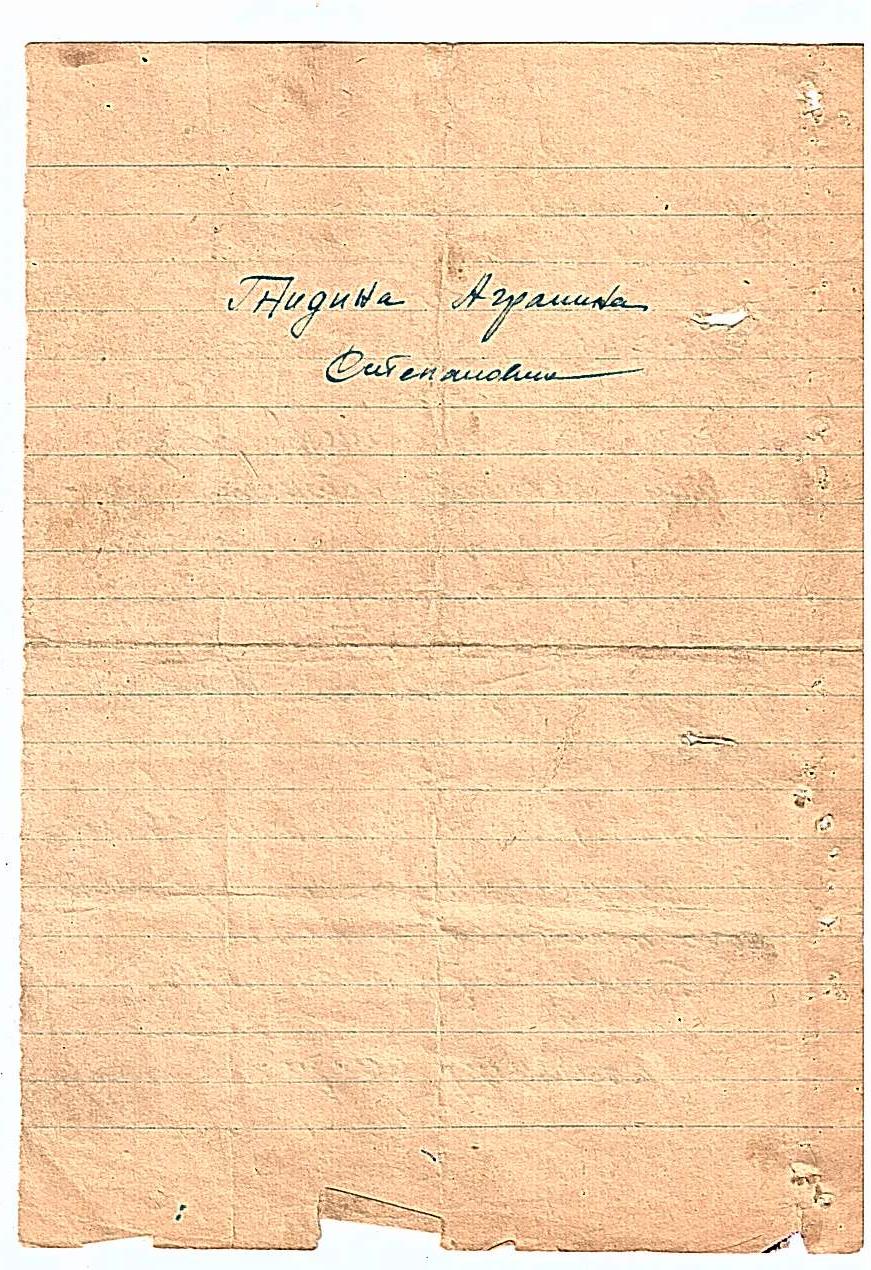 Гнидина Агрипина
Степановна